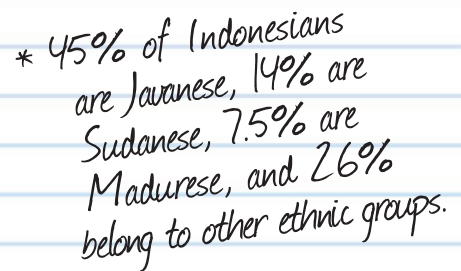 * 45% of Indonesians
are Javanese, 14% are
Sudanese, 7.5% are
Madurese, and 26%
belong to other ethnic groups.